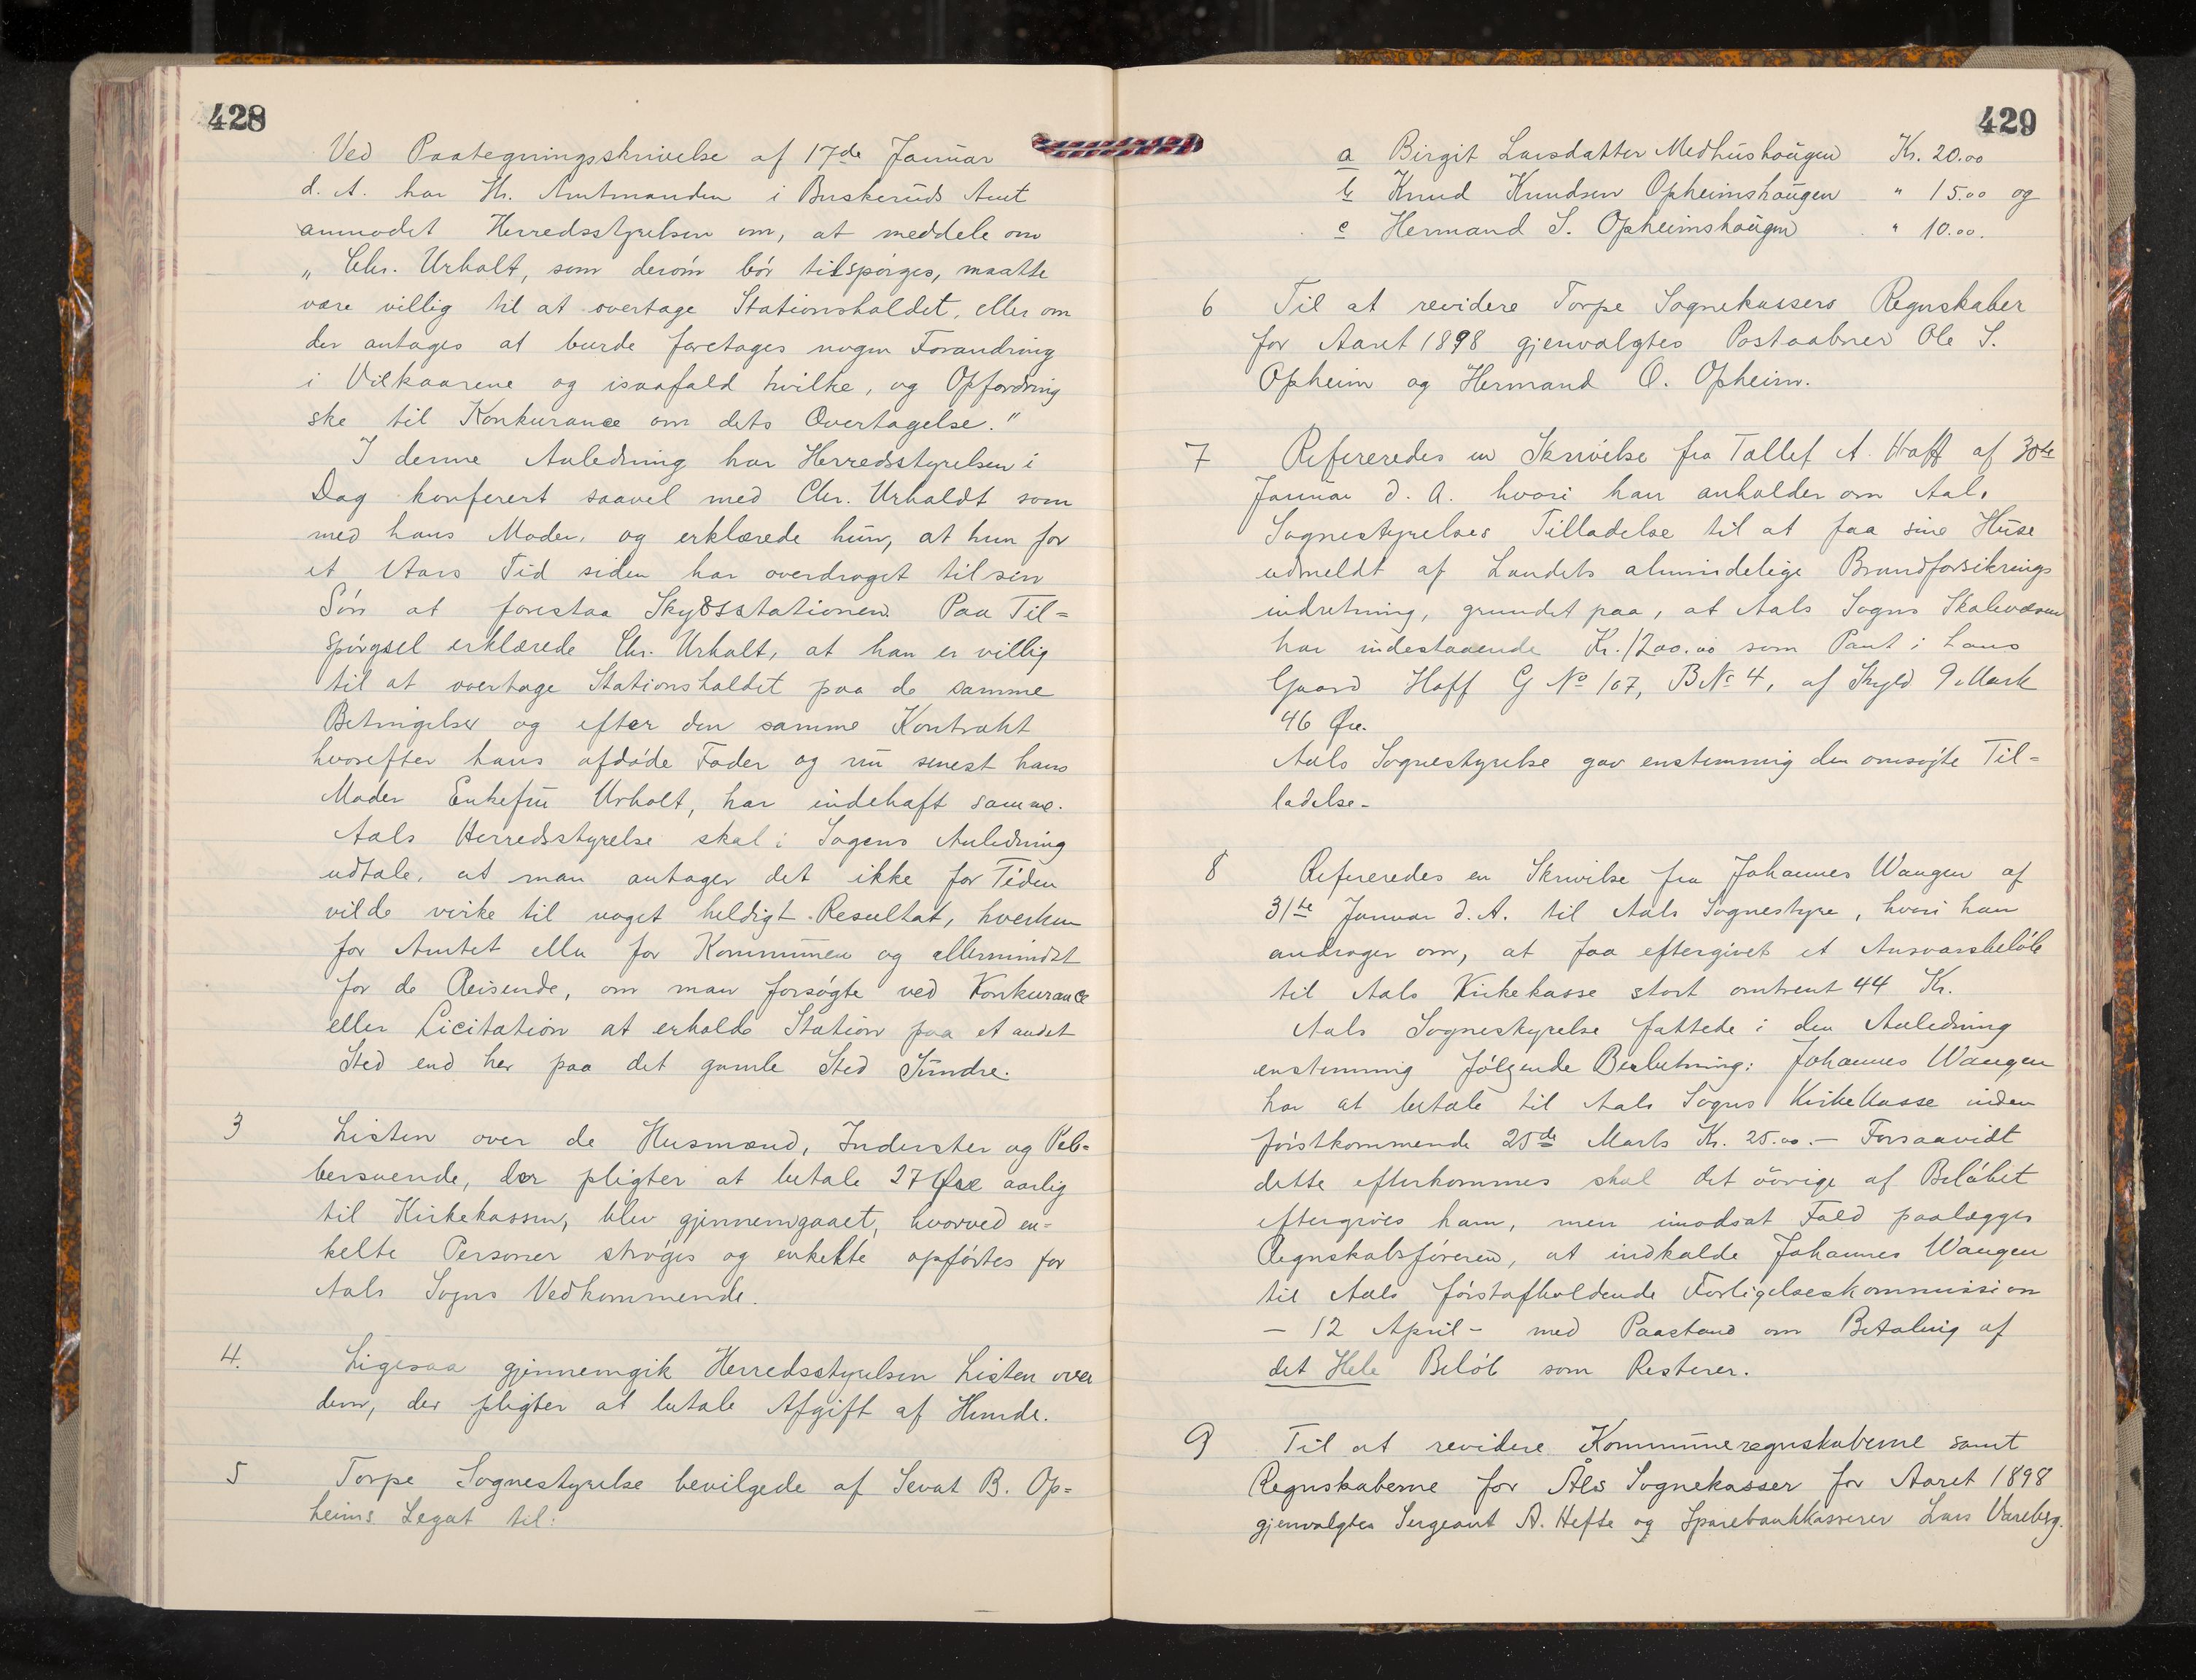 428
Ved Paategningsskrivelse af 17de Januar
d. A. har Hr. Amtmanden i Buskeruds Amt
anmodet Herredsstyrelsen om, at meddele om
„ Chr. Urholt, som derom bør tilspørges, maatte
være villig til at overtage Stationsholdet, eller om
der antages at burde foretages nogen Forandring
i Vilkaarene og isaafald hvilke, og Opfordring
ske til Konkurance om dets Overtagelse."
I denne Anledning har Herredsstyrelsen i
Dag konferert saavel med Chr. Urholdt som
med hans Moder, og erklærede hun, at hun for
et Aars Tid siden har overdraget til sin
Søn at forestaa Skydsstationen. Paa Til=
spørgsel erklærede Chr. Urholt, at han er villig
til at overtage Stationsholdet paa de samme
Betingelser og efter den samme Kontrakt
hvorefter hans afdøde Fader og nu senest hans
Moder Enkefru Urholt, har indehaft samme.
Aals Herredsstyrelse skal i Sagens Anledning
udtale, at man antager det ikke for Tiden
vilde virke til noget heldigt Resultat, hverken
for Amtet eller for Kommunen og allermindst
for de Reisende, om man forsøgte ved Konkurance
eller Licitation at erholde Station paa et andet
Sted end her paa det gamle Sted Sundre.
3 Listen over de Husmænd, Inderster og Peb=
bersvende, der pligter at betale 27 Øre aarlig
til Kirkekassen, blev gjennemgaaet, hvorved en=
kelte Personer strøges og enkelte opførtes for
Aals Sogns Vedkommende.
4. Ligesaa gjennemgik Herredsstyrelsen Listen over
dem, der pligter at betale Afgift af Hunde.
5 Torpe Sognestyrelse bevilgede af Sevat B. Op=
heims Legat til:
429
a Birgit Larsdatter Medhushaugen Kr. 20.00
b Knud Knudsen Opheimshaugen " 15.00 og
c Hermand S. Opheimshaugen " 10.00.
6 Til at revidere Torpe Sognekassers Regnskaber
for Aaret 1898 gjenvalgtes Postaabner Ole S.
Opheim og Hermand O. Opheim.
7 Refereredes en Skrivelse fra Tollef A. Hoff af 30te
Januar d. A. hvori han anholder om Aals
Sognestyrelses Tilladelse til at faa sine Huse
udmeldt af Landets almindelige Brandforsikrings
indretning, grundet paa, at Aals Sogns Skolevæsen
har indestaaende Kr. 1200.00 som Pant i hans
Gaard Hoff G No 107, B No 4, af Skyld 9 Mark
46 Øre.
Aals Sognestyrelse gav enstemmig den omsøgte Til=
ladelse.
8 Refereredes en Skrivelse fra Johannes Wangen af
31te Januar d. A. til Aals Sognestyre, hvori han
andrager om, at faa eftergivet et Ansvarsbeløb
til Aals Kirkekasse stort omtrent 44 Kr.
Aals Sognestyrelse fattede i den Anledning
enstemmig følgende Beslutning: Johannes Wangen
har at betale til Aals Sogns Kirkekasse inden
førstkommende 25de Marts Kr. 25.00. – Forsaavidt
dette efterkommes skal det øvrige af Beløbet
eftergives ham, men imodsat Fald paalægges
Regnskabsføreren, at indkalde Johannes Wangen
til Aals førstafholdende Forligelseskommission
– 12 April – med Paastand om Betaling af
det Hele Beløb som Resterer.
9 Til at revidere Kommuneregnskaberne samt
Regnskaberne for Åls Sognekasser for Aaret 1898
gjenvalgtes Sergeant A. Hefte og Sparebankkasserer Lars Vareberg.